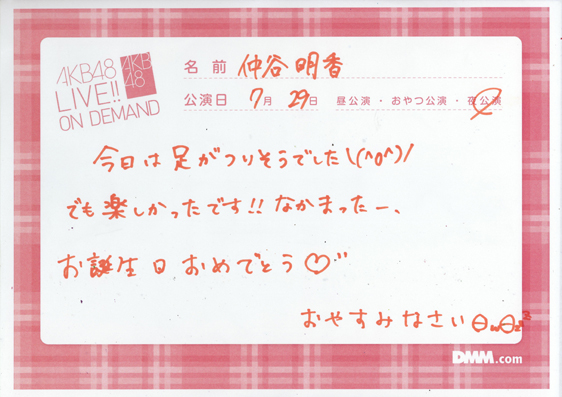 AKB48
LIVE!!
ON DEMAND
AKB
48
名前 仲谷明香
公演日 7月 29日 昼公演・おやつ公演・夜公演
今日は足がつりそうでした\(^o^)/
でも楽しかったです!!なかまったー、
お誕生日おめでとう♡
おやすみなさい
DMM.com